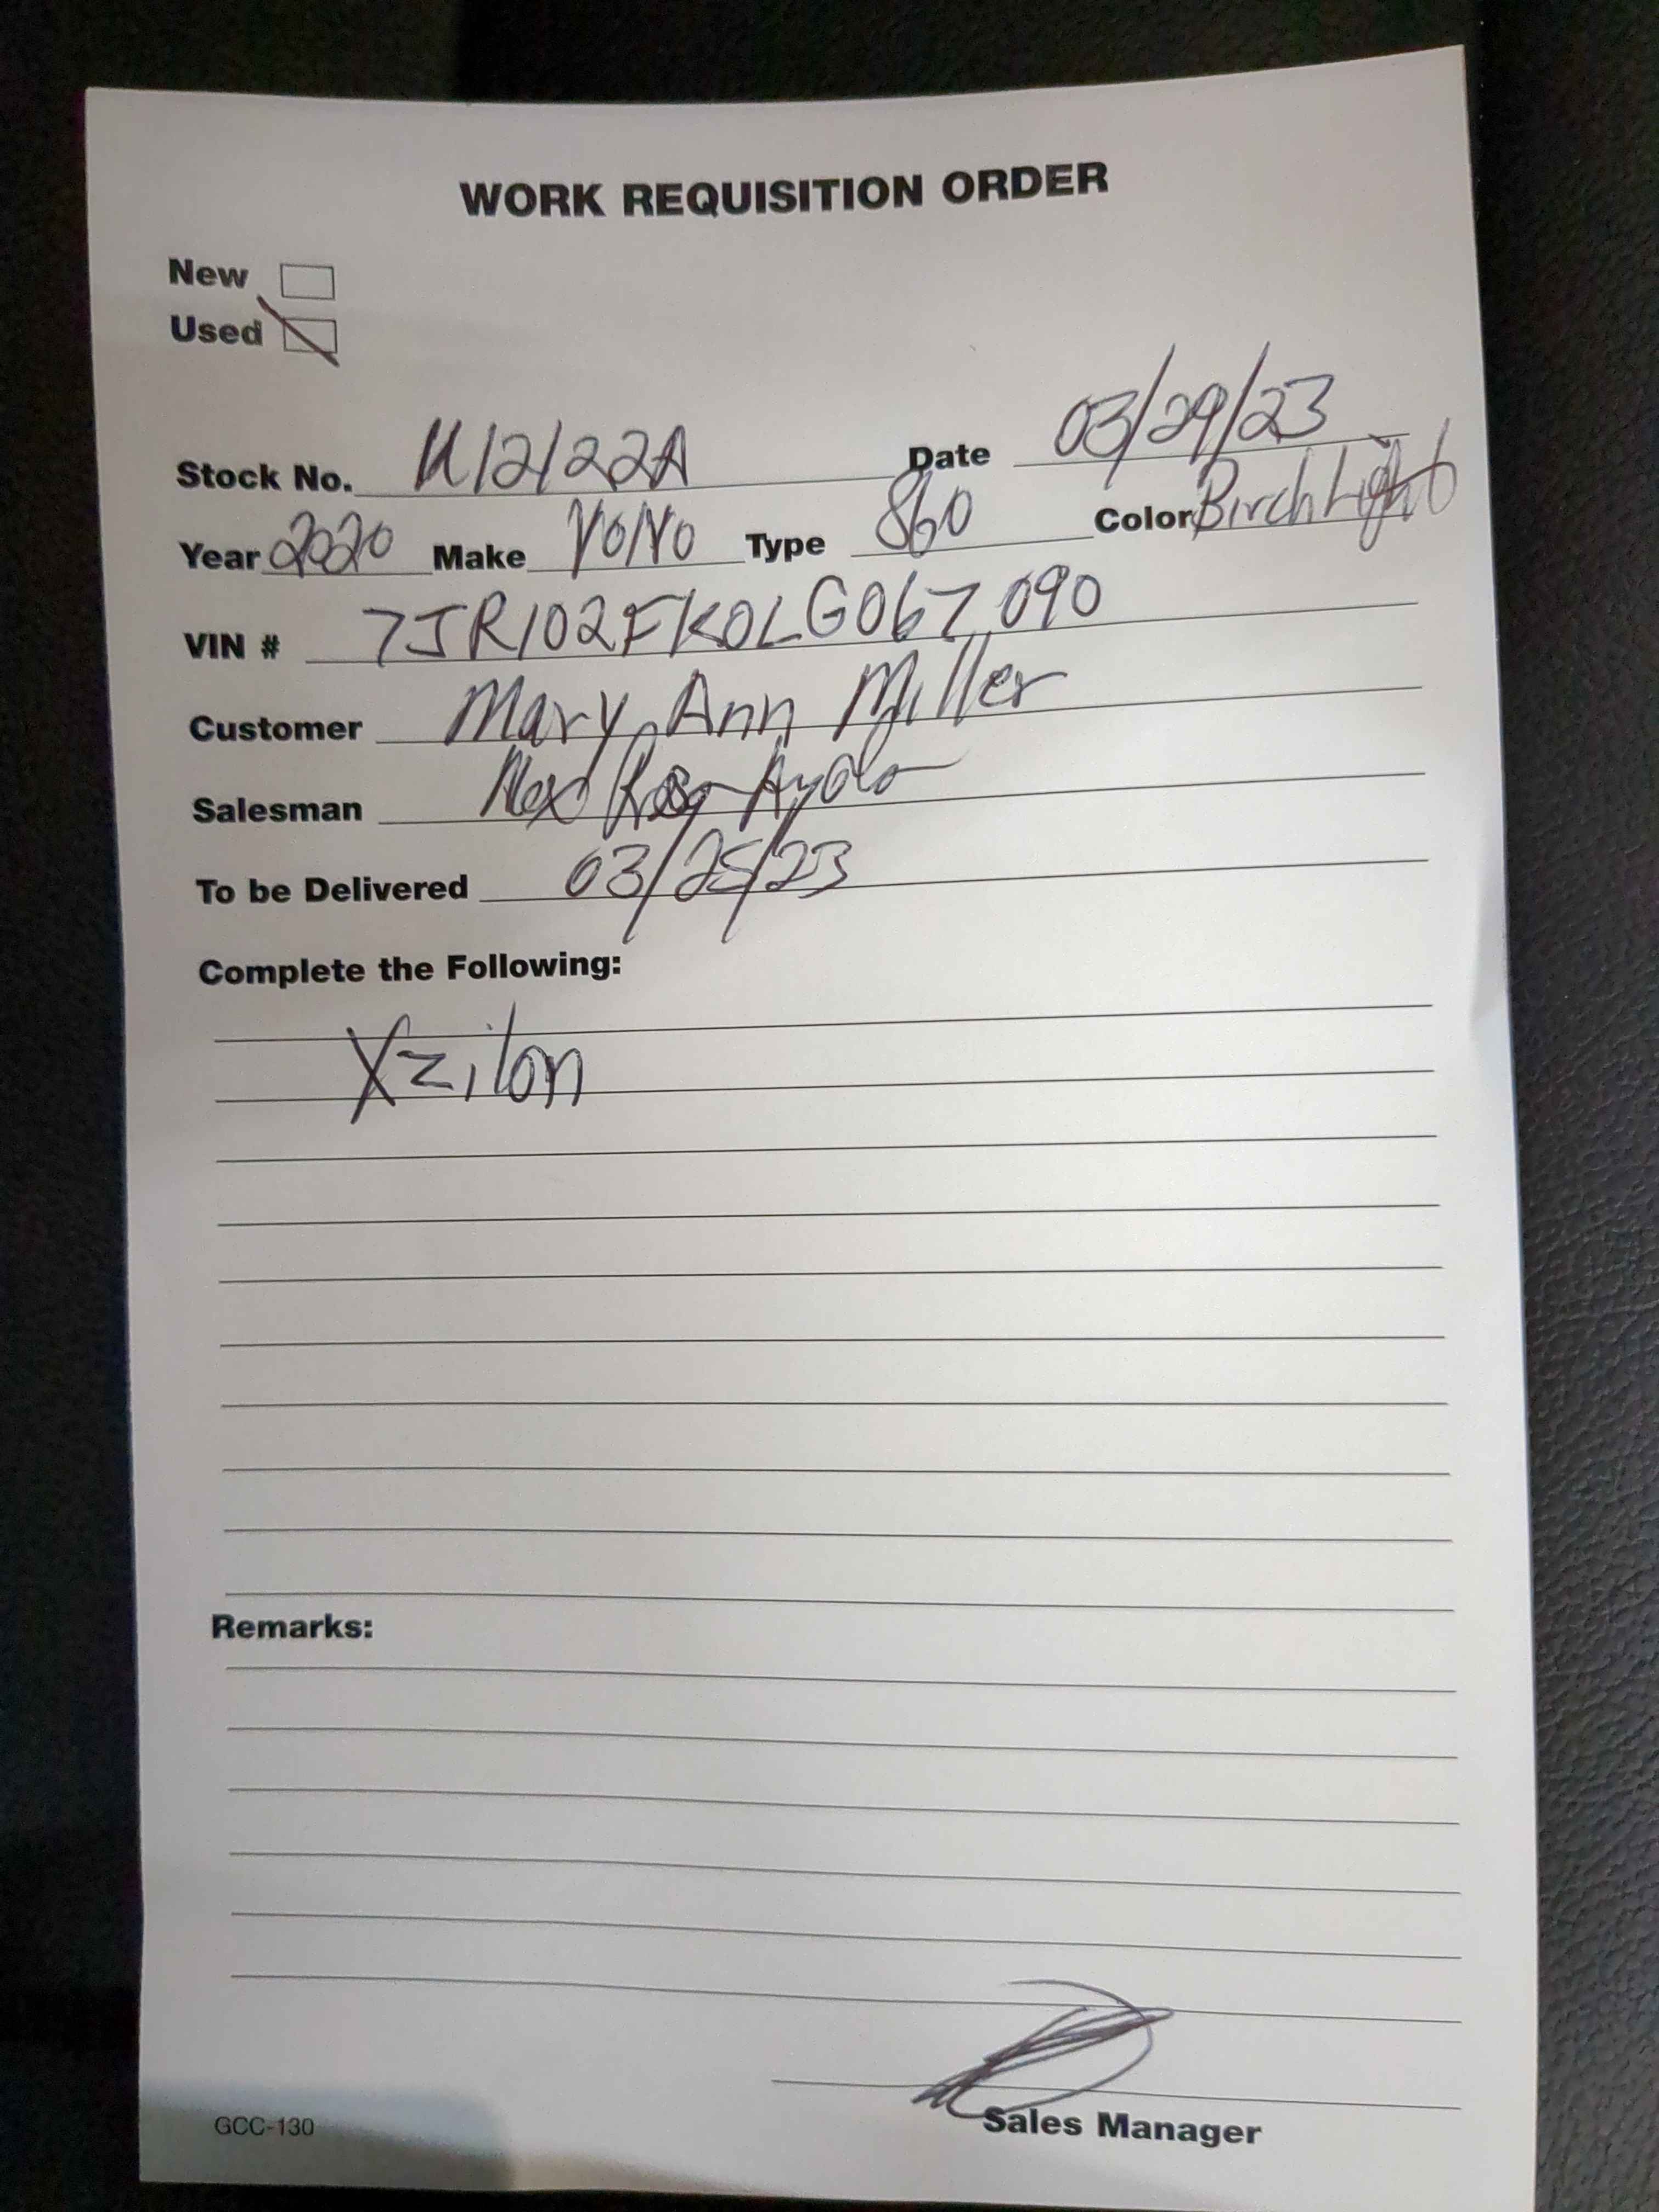 WORK REQUISITION ORDER
New
Used
Stock No. U12122A Date 03/29/23
Year 2020 Make Volvo Type S60 Color Birch Light
VIN # 7JR102FK0LG067090
Customer Mary Ann Miller
Salesman Alex Ayala
To be Delivered 03/25/23
Complete the Following:
Xzilon
Remarks:
Sales Manager
GCC-130